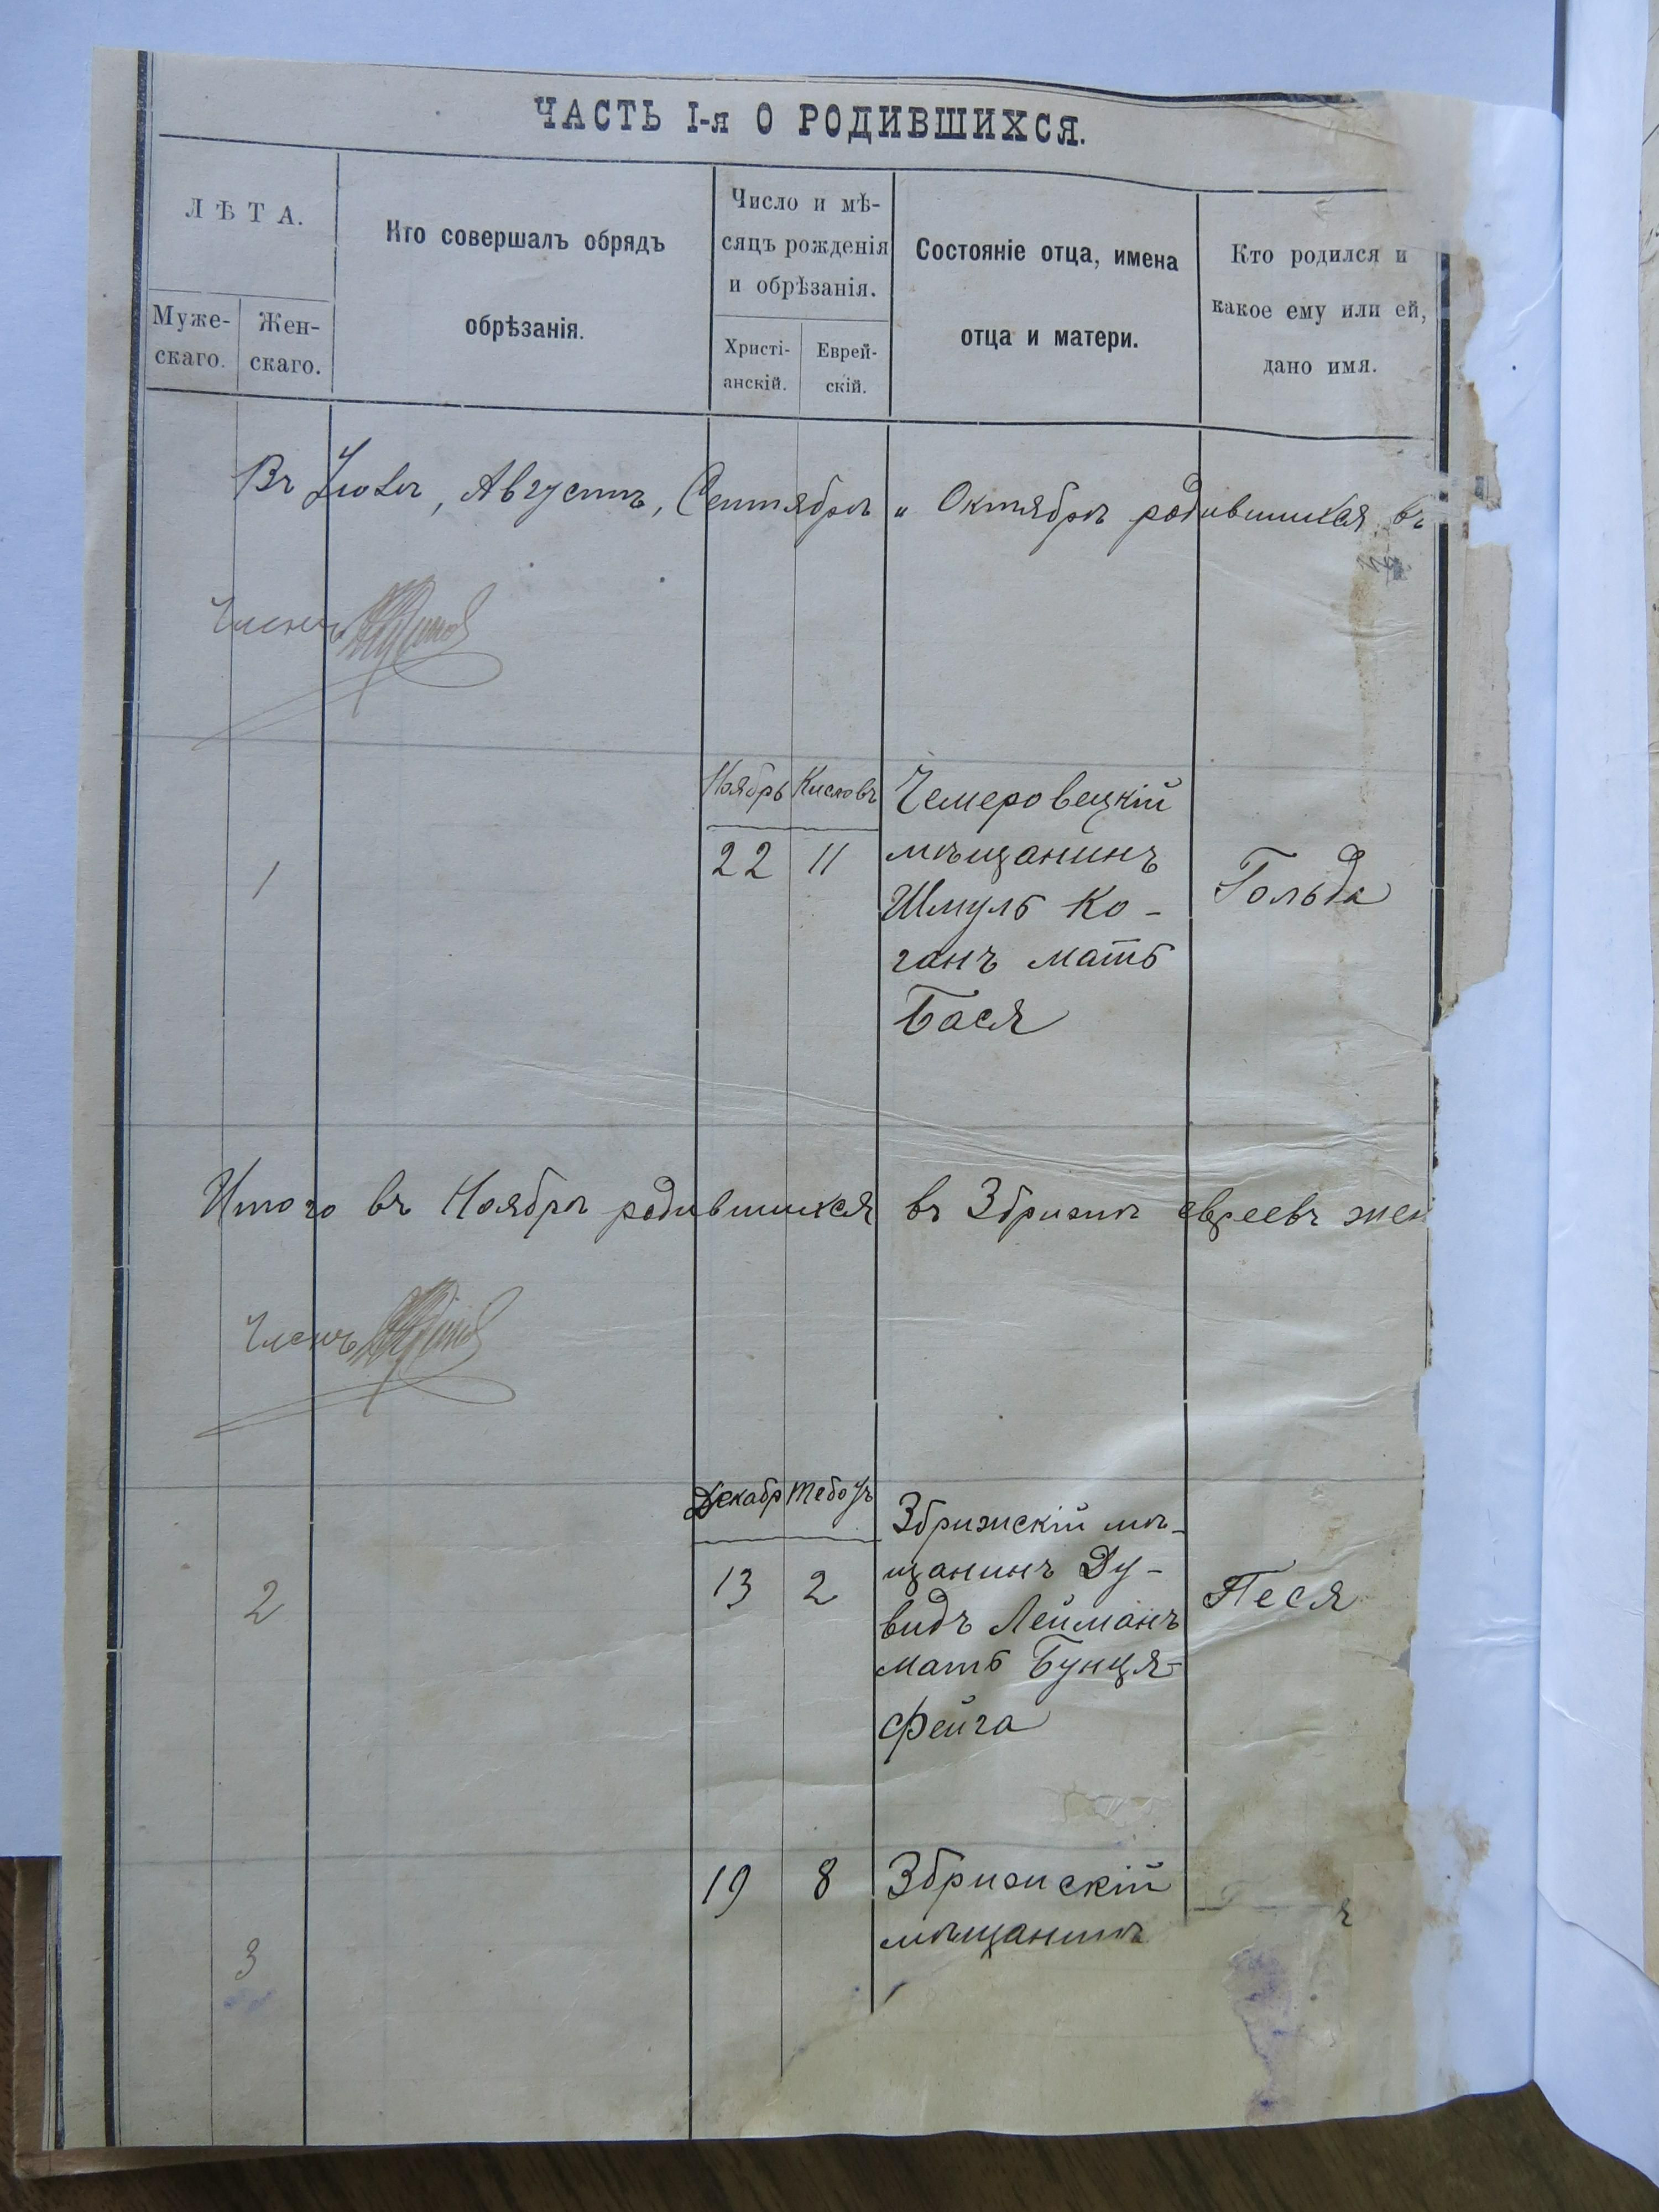 ЧАСТЬ I-я О РОДИВШИХСЯ.
ЛѢТА.
Муже-
скаго.
Жен-
скаго.
Кто совершалъ обрядъ
обрѣзанія.
Число и мѣ-
сяцъ рожденія
и обрѣзанія.
Христі-
анскій.
Еврей-
скій.
Состояніе отца, имена
отца и матери.
Кто родился и
какое ему или ей,
дано имя.
Въ Іюлѣ, Августѣ, Сентябрѣ и Октябрѣ родившихся въ
Членъ
Ноябрь Кислевъ
1
22 11
Чемеровецкій
мѣщанинъ
Шмуль Ко-
ганъ мать
Бася
Гольда
Итого въ Ноябрѣ родившихся въ Збрижѣ евреевъ жен
Членъ
Декабр
2
13 2
Збрижскій мѣ-
щанинъ Ду-
видъ Лейманъ
мать Бунця-
Фейга
Песя
3
19 8
Збрижскій
мѣщанинъ